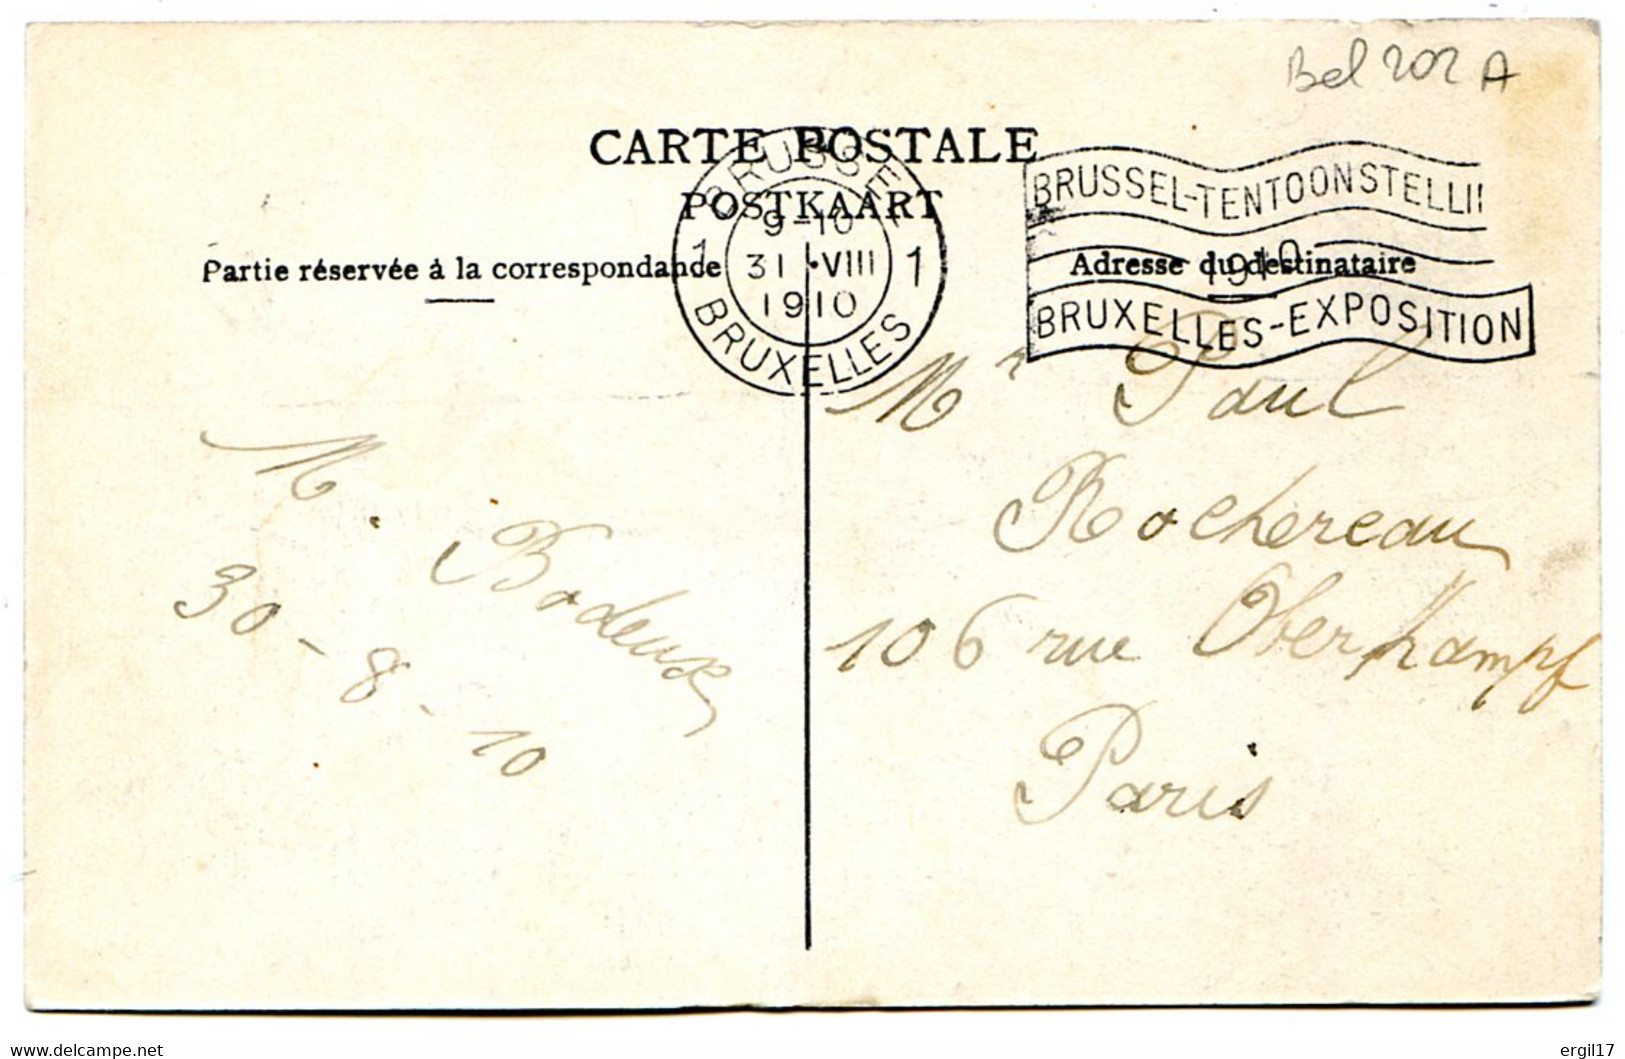 Bel 202 A
CARTE POSTALE
POSTKAART
Partie réservée à la correspondance
Adresse du destinataire
BRUSSEL
9-10
1 31 VIII 1
1910
BRUXELLES
BRUSSEL-TENTOONSTELLII
1910
BRUXELLES-EXPOSITION
Mr Paul
Rochereau
106 rue Oberkampf
Paris
M. Bodeux
30-8-10
delcampe.net
ergil17